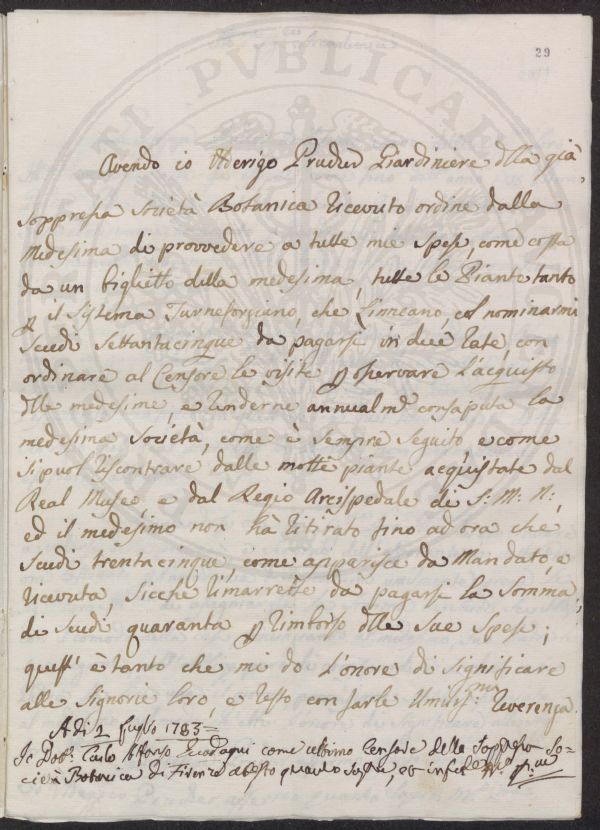 29
Avendo io Uderigo Prucher Giardiniere dlla già
soppressa Società Botanica ricevuto ordine dalla
Medesima di provvedere a tutte mie spese, come costa
da un biglietto della medesima, tutte le Piante tanto
p il Sistema Turneforziano, che Linneano, col nominarmi
Scudi Settantacinque da pagarsi in due rate, con
ordinare al Censore le visite p osservare l'acquisto
dlle medesime, e renderne annualmte consaputa la
medesima Società, come è sempre seguito e come
si puol riscontrare dalle molte piante acquistate dal
Real Museo e dal Regio Arcispedale di S: M: N:,
ed il medesimo non hà ritirato fino ad ora che
scudi trentacinque, come apparisce da Mandato, e
ricevuta, sicchè rimarrebbe da pagarsi la Somma
di Scudi quaranta p rimborso dlle sue spese;
quest' è tanto che mi do l'onore di significare
alle Signorie loro, e resto con farle Umiliss:ma reverenza
A dì 2 Luglio 1783
Io Dott: Carlo Alfonso Guadagni come ultimo Censore della Soppressa So-
cietà Botanica di Firenze attesto quanto sopra, et in fede